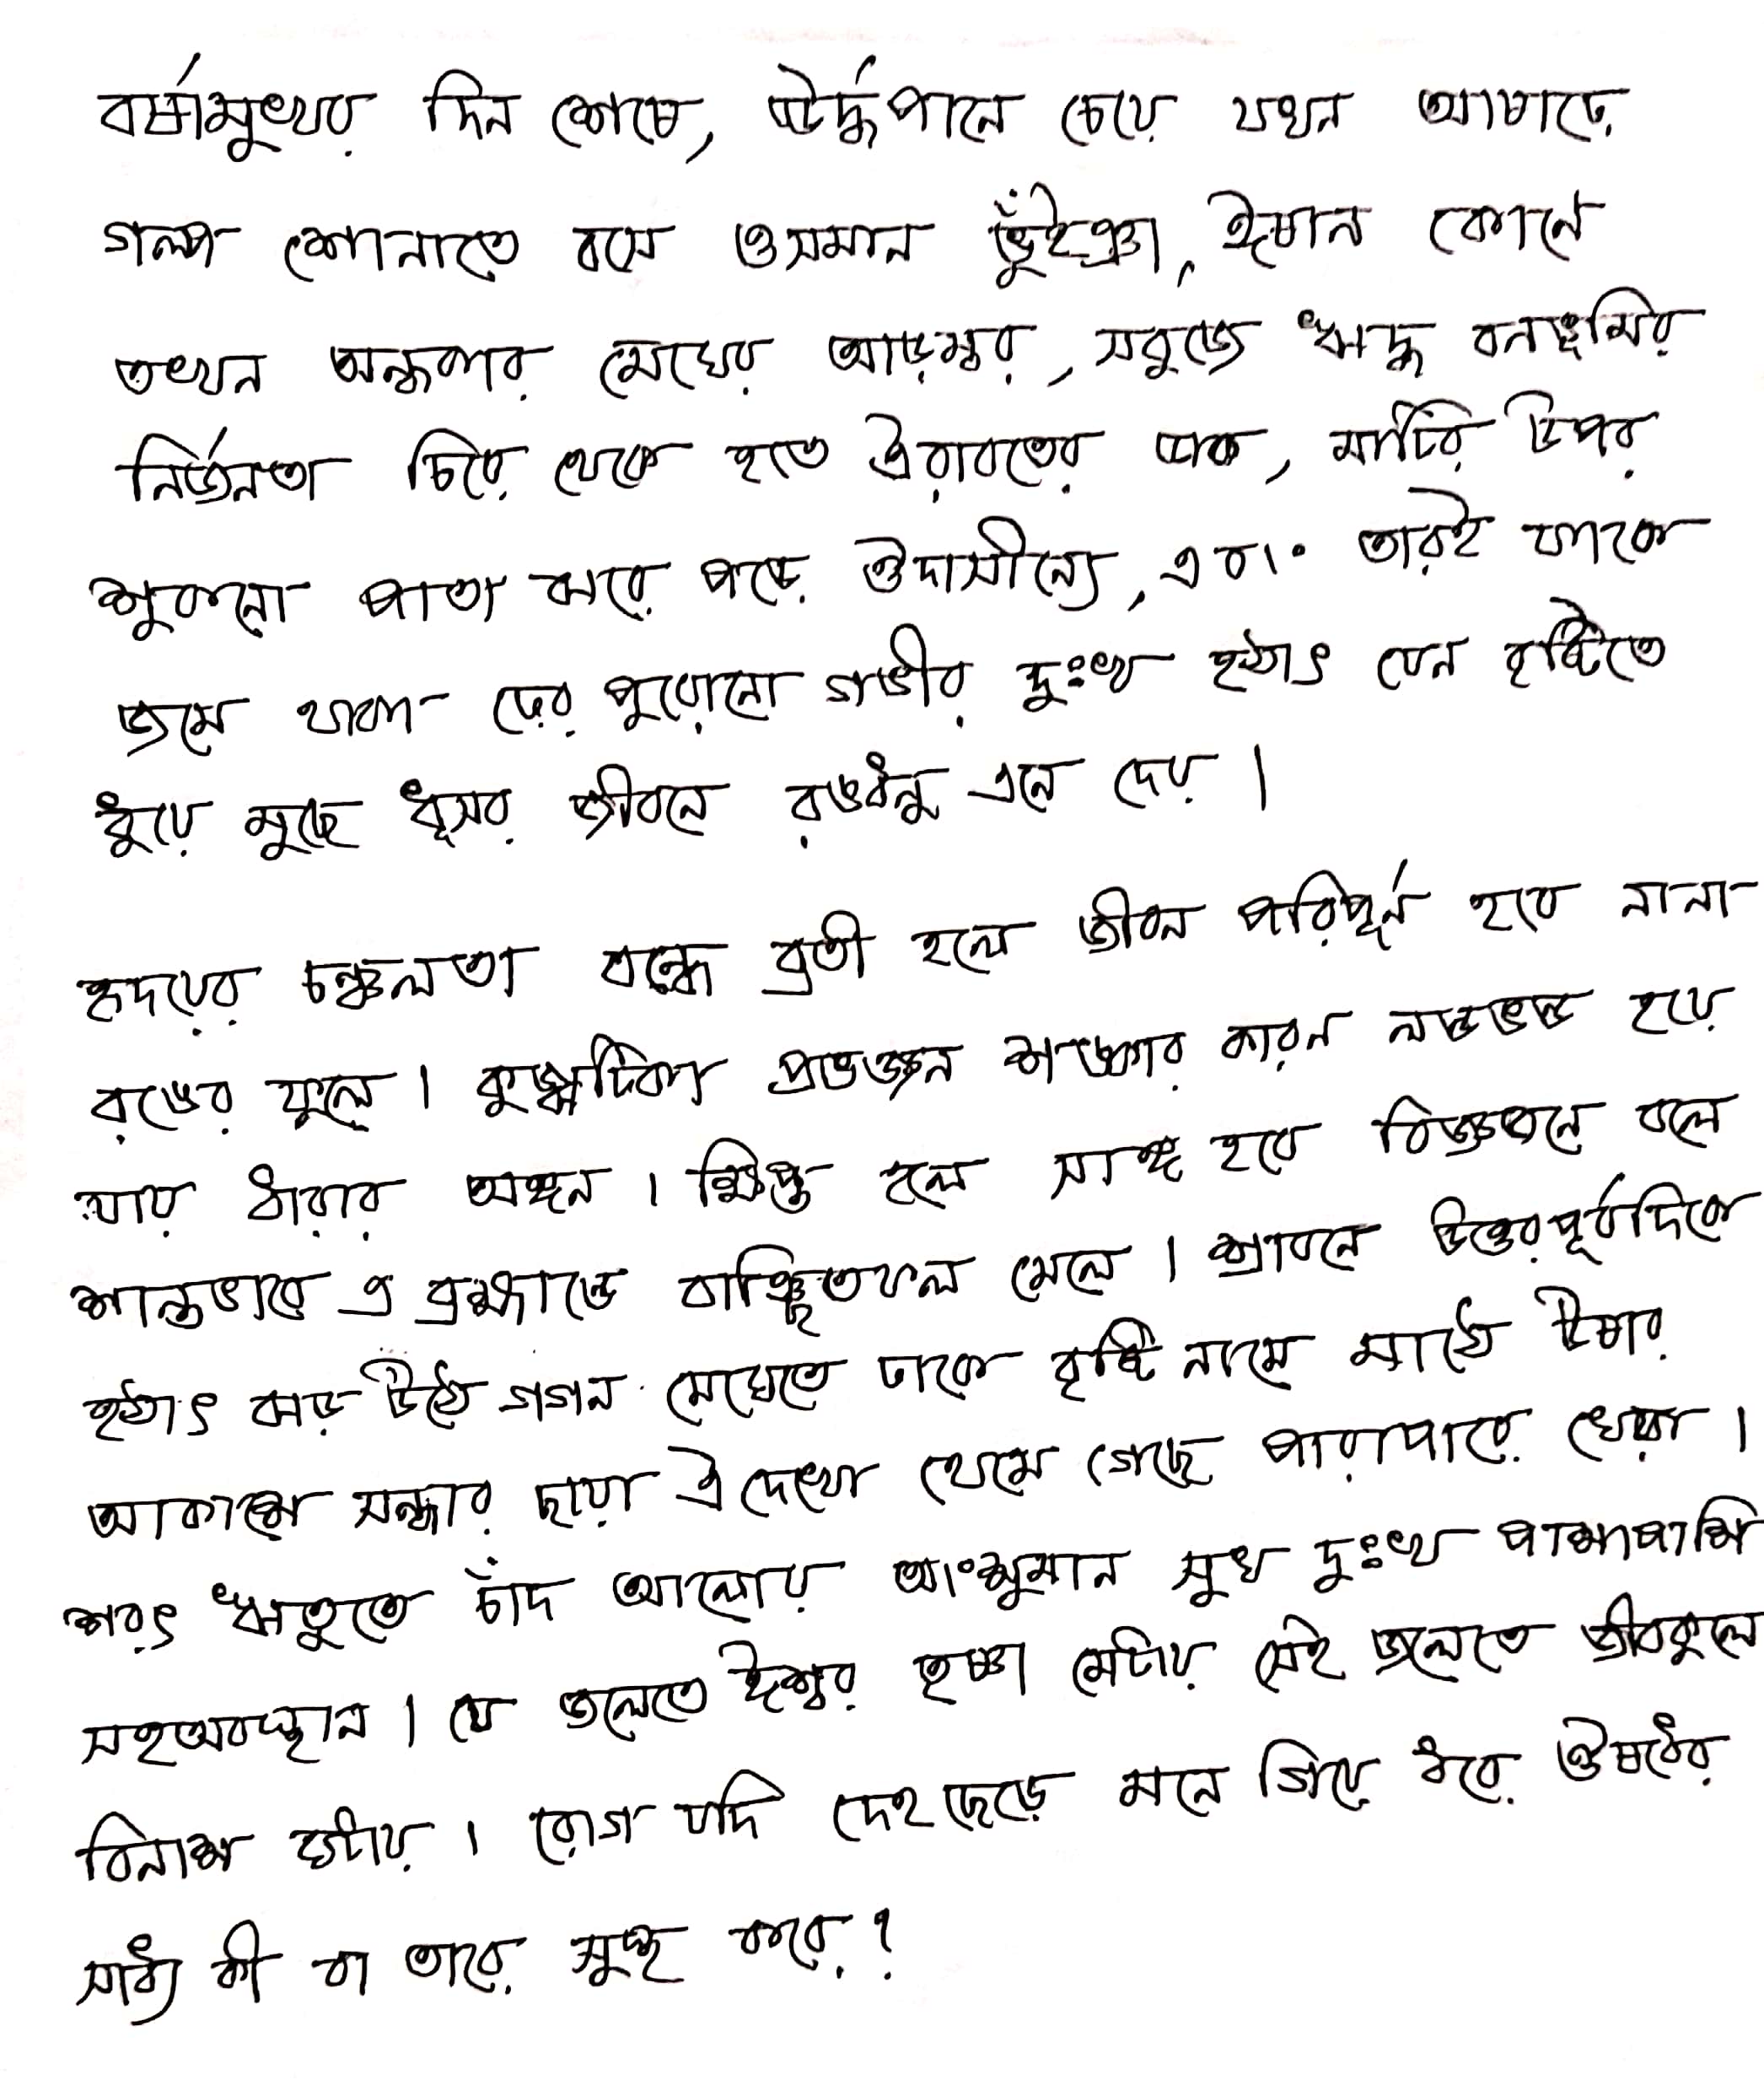 বর্ষামুখর দিন শেষে, ঊর্দ্ধপানে চেয়ে যখন আষাঢ়ে
গল্প শোনাতে বসে ওসমান ভুঁইঞা, ঈষান কোনে
তখন অন্ধকার মেঘের আড়ম্বর, সবুজে ঋদ্ধ বনভূমির
নির্জনতা চিরে থেকে হতে ঐরাবতের ডাক, মাটির উপর
শুকনো পাতা ঝরে পড়ে ঔদাসীন্যে, এবং তারই ফাকে
জমে থাকা ঢের পুরোনো গভীর দুঃখ হঠাৎ যেন বৃষ্টিতে
ধুয়ে মুছে ধূসর জীবনে রঙধনু এনে দেয় ।
হৃদয়ের চঞ্চলতা বন্ধে ব্রতী হলে জীবন পরিপূর্ন হবে নানা
রঙের ফুলে । কুজ্ঝটিকা প্রভঞ্জন শঙ্কার কারন লণ্ডভণ্ড হয়ে
যায় ধারার অঙ্গন । ক্ষিপ্ত হলে সাঙ্গ হবে বিজ্ঞজনে বলে
শান্তভাবে এ ব্রহ্মাণ্ডে বাঞ্ছিতফল মেলে । শ্রাবনে উত্তরপূর্বদিকে
হঠাৎ ঝড় উঠে গগন মেঘেতে ঢাকে বৃষ্টি নামে মাঠে ঊষার
আকাশে সন্ধ্যার ছায়া ঐ দেখো থেমে গেছে পারাপারে খেয়া ।
শরৎ ঋতুতে চাঁদ আলোয় অংশুমান সুখ দুঃখ পাশাপাশি
সহঅবস্থান । যে জলেতে ঈশ্বর তৃষ্ণা মেটায় সেই জলেতে জীবকুলে
বিনাশ ঘটায় । রোগ যদি দেহ ছেড়ে মনে গিয়ে ধরে ঔষধের
সাধ্য কী বা তারে সুস্থ করে ?